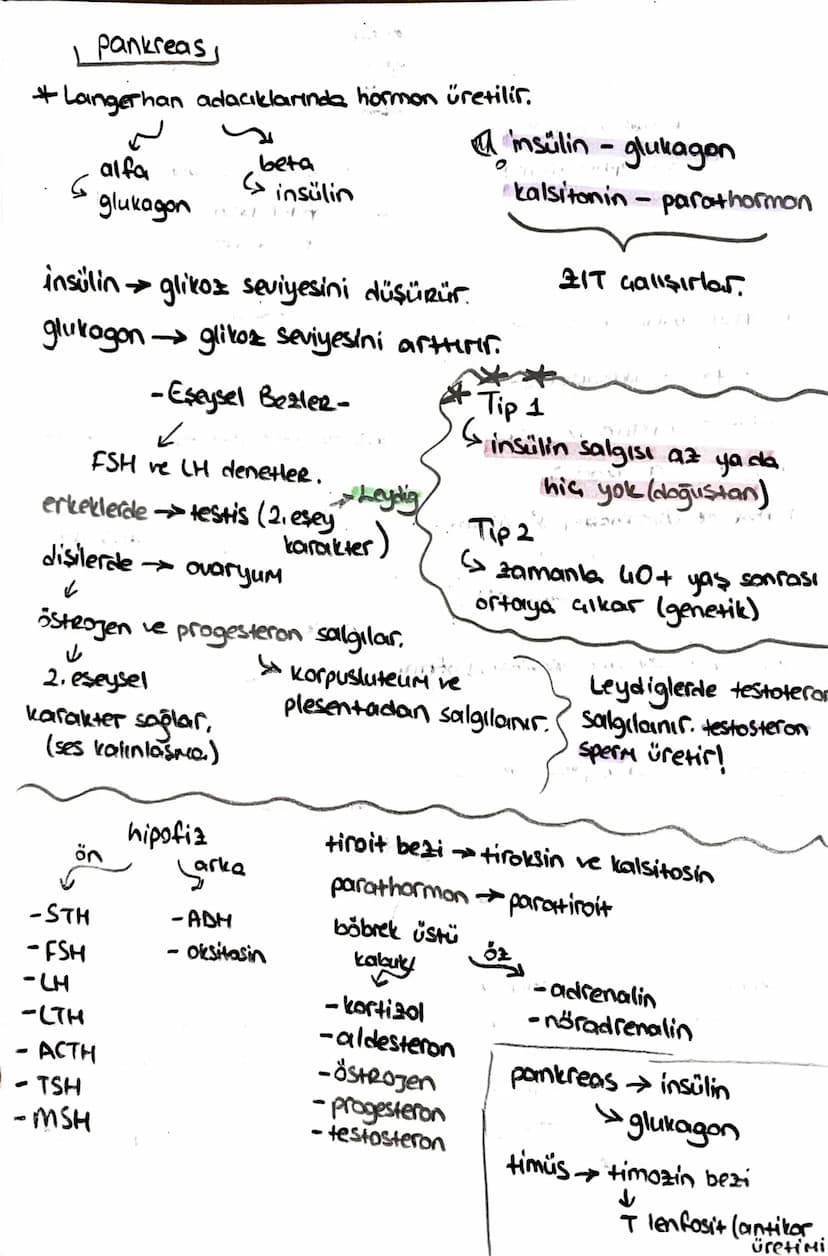 pankreas
* Langerhan adacıklarında hormon üretilir.
alfa
↳ glukagon
beta
↳ insülin
insülin - glukagon
kalsitonin - parathormon
ZIT çalışırlar.
insülin → glikoz seviyesini düşürür.
glukagon → glikoz seviyesini arttırır.
-Eşeysel Bezler-
FSH ve LH denetler.
erkeklerde → testis (2. eşey
karakter)
→ Leydig
dişilerde → ovaryum
östrojen ve progesteron salgılar.
2. eşeysel
karakter sağlar.
(ses kalınlaşma.)
korpusluteum ve
plesentadan salgılanır.
Tip 1
↳ insülin salgısı az ya da
hiç yok (doğuştan)
Tip 2
↳ zamanla 40+ yaş sonrası
ortaya çıkar (genetik)
Leydiglerde testoteron
salgılanır. testosteron
sperm üretir!
hipofiz
ön
-STH
-FSH
-LH
-LTH
- ACTH
- TSH
-MSH
arka
-ADH
- oksitasin
tiroit bezi → tiroksin ve kalsitosin
parathormon → paratiroit
böbrek üstü
kabuk
-kortizol
-aldesteron
-östrojen
-progesteron
-testosteron
öz
-adrenalin
-nöradrenalin
pankreas → insülin
→ glukagon
timüs → timozin bezi
↓
T lenfosit (antikor
üretimi